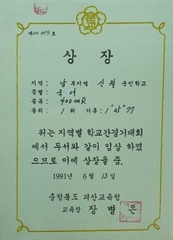 상장
지역 : 남부지역 신월 국민학교
종별 :
종목 : 400mR
등위 : 1 위 기록 : 1'05"77
위는 지역별 학교간경기대회
에서 두서와 같이 입상 하였
으므로 이에 상장을 줌.
1991년 6월 13일
충청북도 괴산교육원
교육장 장병은